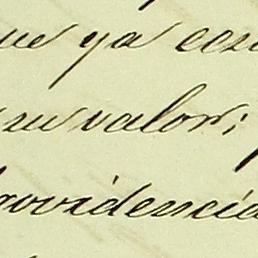 que ya
su valor;
rovidencia